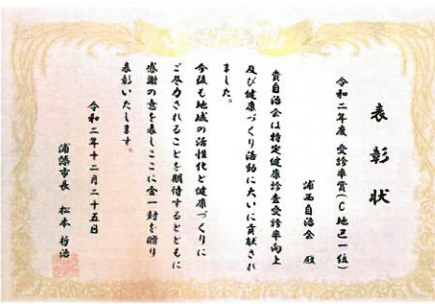 表彰状
令和二年度 受診率賞(C地区一位)
浦西自治会 殿
貴自治会は特定健康診査受診率向上
及び健康づくり活動に大いに貢献され
ました。
今後も地域の活性化と健康づくりに
ご尽力されることを期待するとともに
感謝の意を表しここに金一封を贈り
表彰いたします。
令和二年十二月二十五日
浦添市長 松本哲治